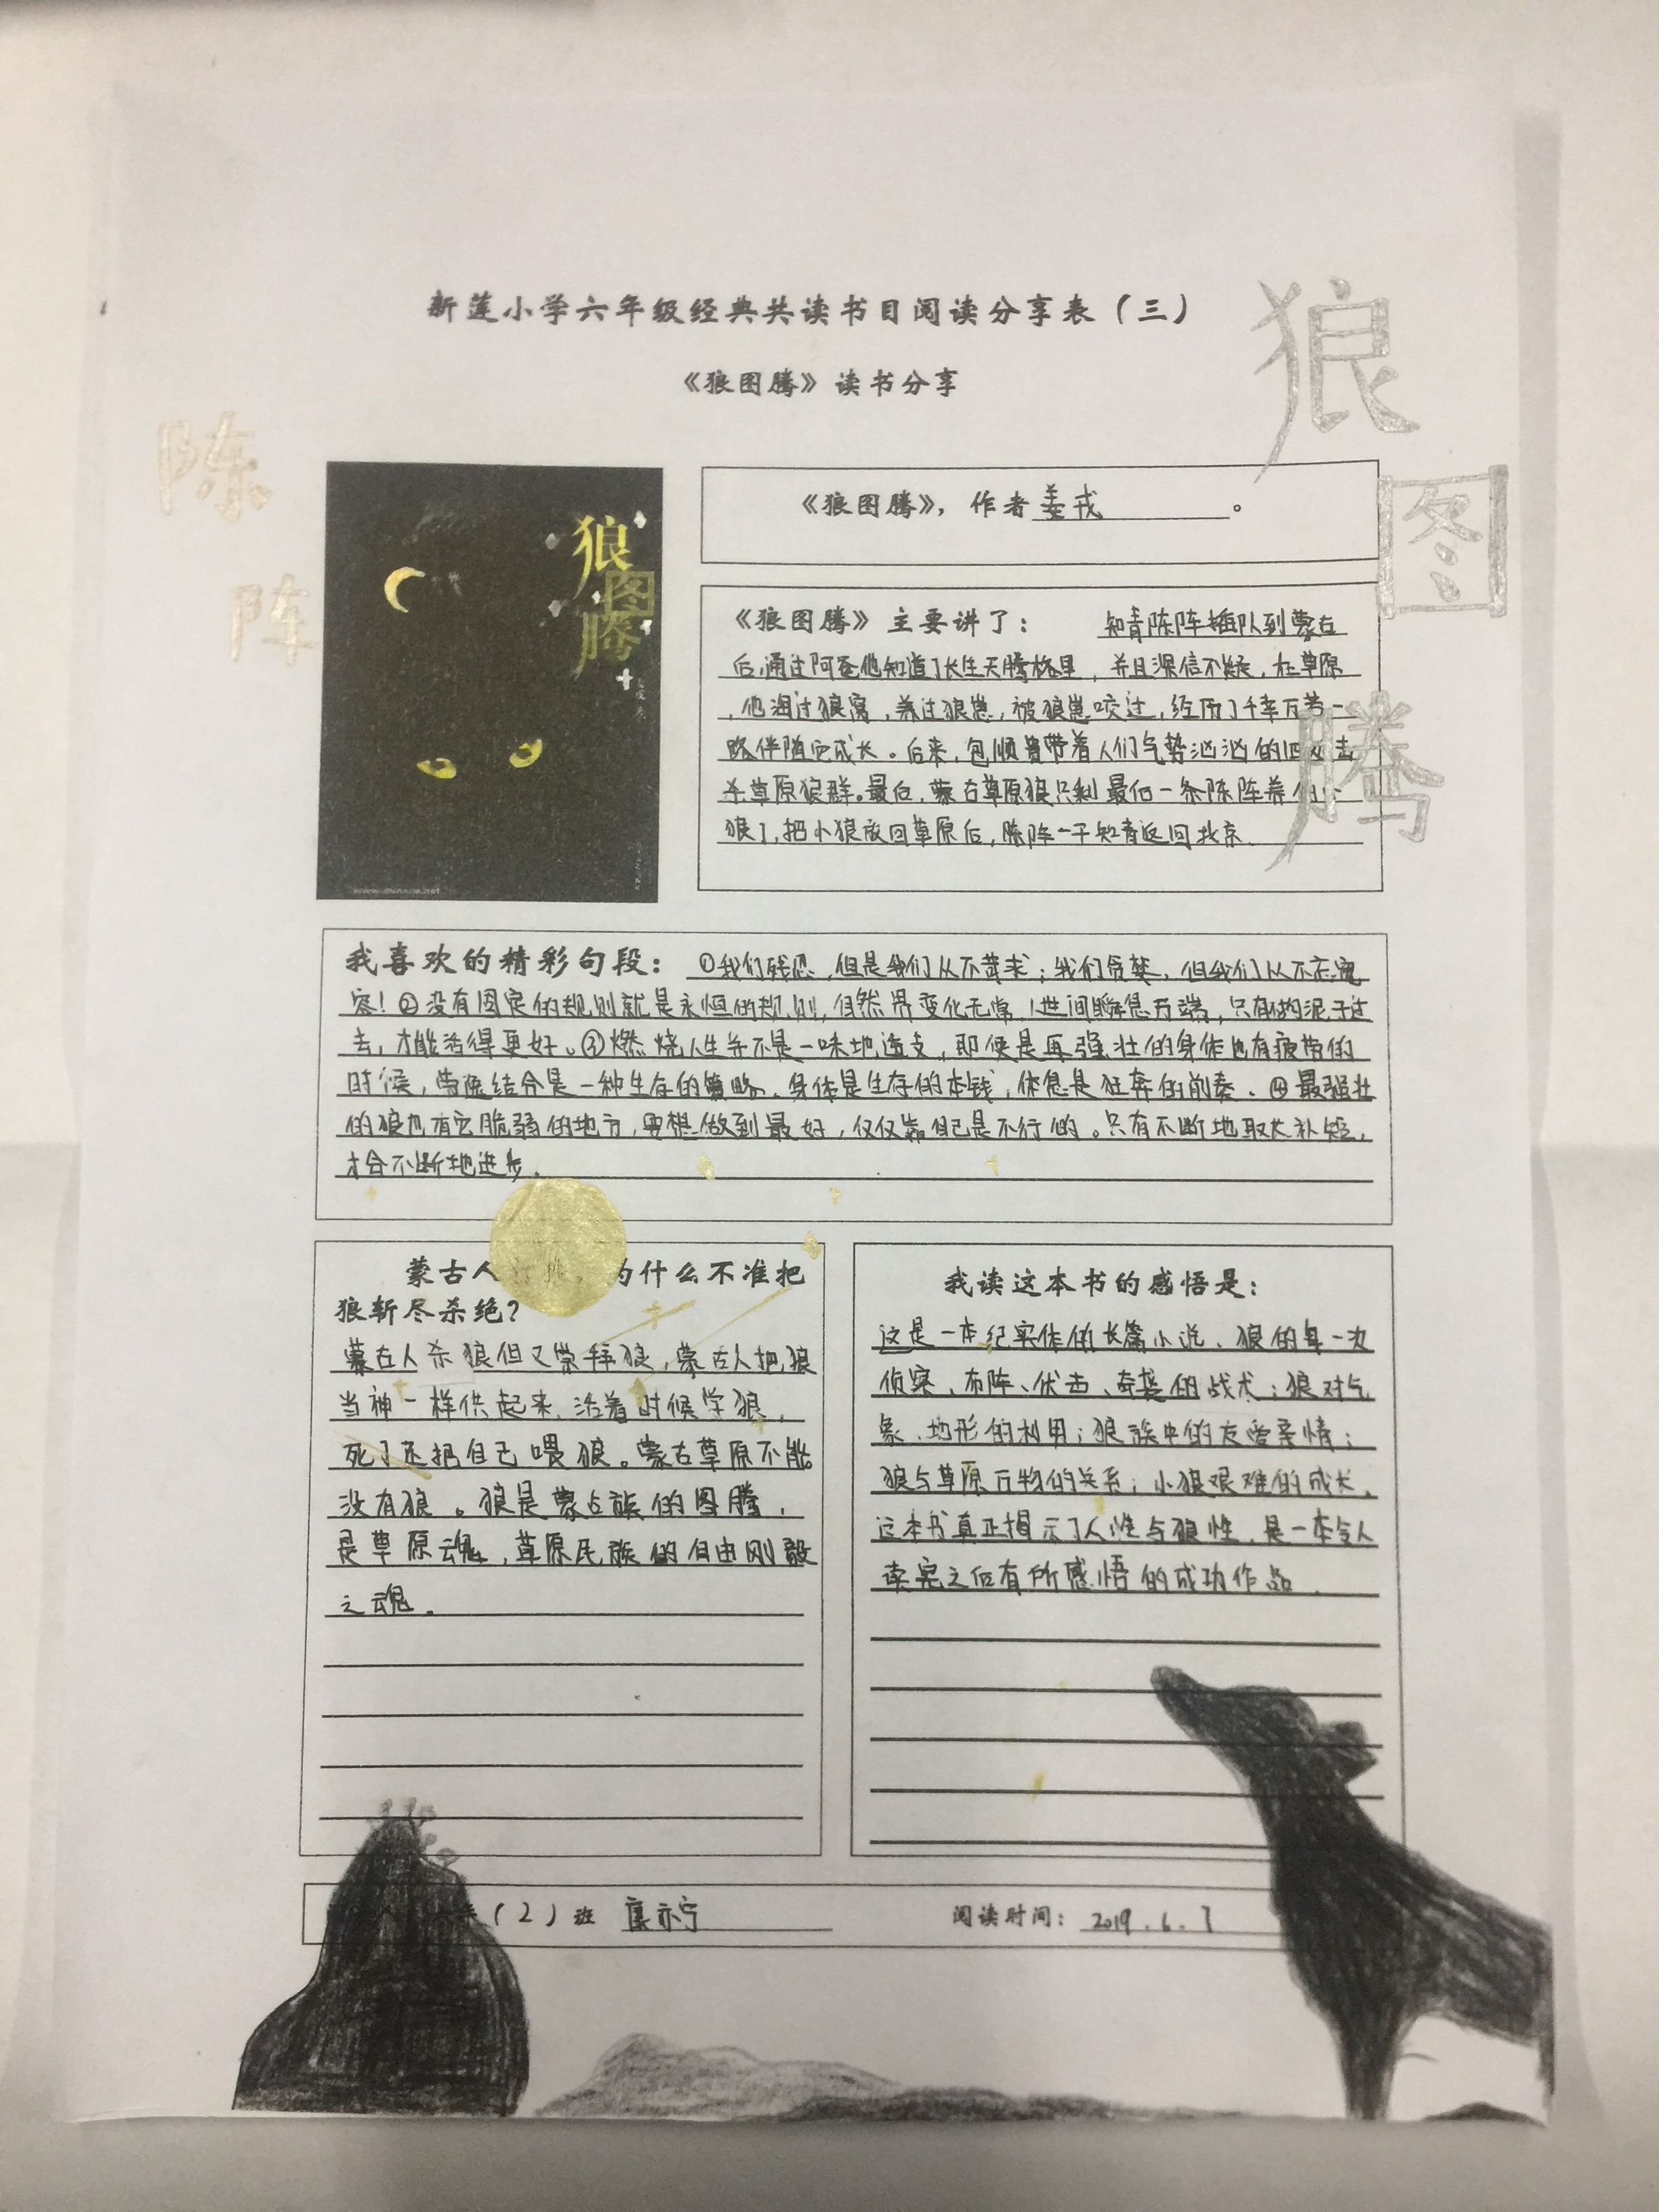 新莲小学六年级经典共读书目阅读分享表（三）
《狼图腾》读书分享
狼
图
腾
陈
阵
狼
图
腾
《狼图腾》，作者姜戎。
《狼图腾》主要讲了： 知青陈阵插队到蒙古
后，通过阿爸他知道了长生天腾格里，并且深信不疑，在草原
，他掏过狼窝，养过狼崽，被狼崽咬过，经历了千辛万苦一
路伴随它成长。后来，包顺贵带着人们气势汹汹的击
杀草原狼群。最后，蒙古草原狼只剩最后一条陈阵养
狼了，把小狼放回草原后，陈阵一干知青返回北京.
我喜欢的精彩句段： ①我们残忍，但是我们从不苛求；我们贪婪，但我们从不
容！②没有固定的规则就是永恒的规则，自然界变化无常，世间瞬息万端，只有拘泥于过
去，才能活得更好。③燃烧人生并不是一味地透支，即使是再强壮的身体也有疲惫的
时候，劳逸结合是一种生存的策略，身体是生存的本钱，休息是狂奔的前奏．④最强壮
的狼也有它脆弱的地方，要想做到最好，仅仅靠自己是不行的。只有不断地取长补短，
才会不断地进步.
蒙古人 为什么不准把
狼斩尽杀绝？
蒙古人杀狼但又崇拜狼，蒙古人把狼
当神一样供起来，活着时候学狼，
死了还把自己喂狼。蒙古草原不能
没有狼。狼是蒙古族的图腾，
是草原魂，草原民族的自由刚毅
之魂。
我读这本书的感悟是：
这是一本纪实体的长篇小说、狼的每一次
侦察、布阵、伏击、奇袭的战术；狼对气
象、地形的利用；狼族中的友爱亲情；
狼与草原万物的关系；小狼艰难的成长，
这本书真正揭示了人性与狼性，是一本令人
读完之后有所感悟的成功作品．
（2）班 亦宁 阅读时间：2019.6.7